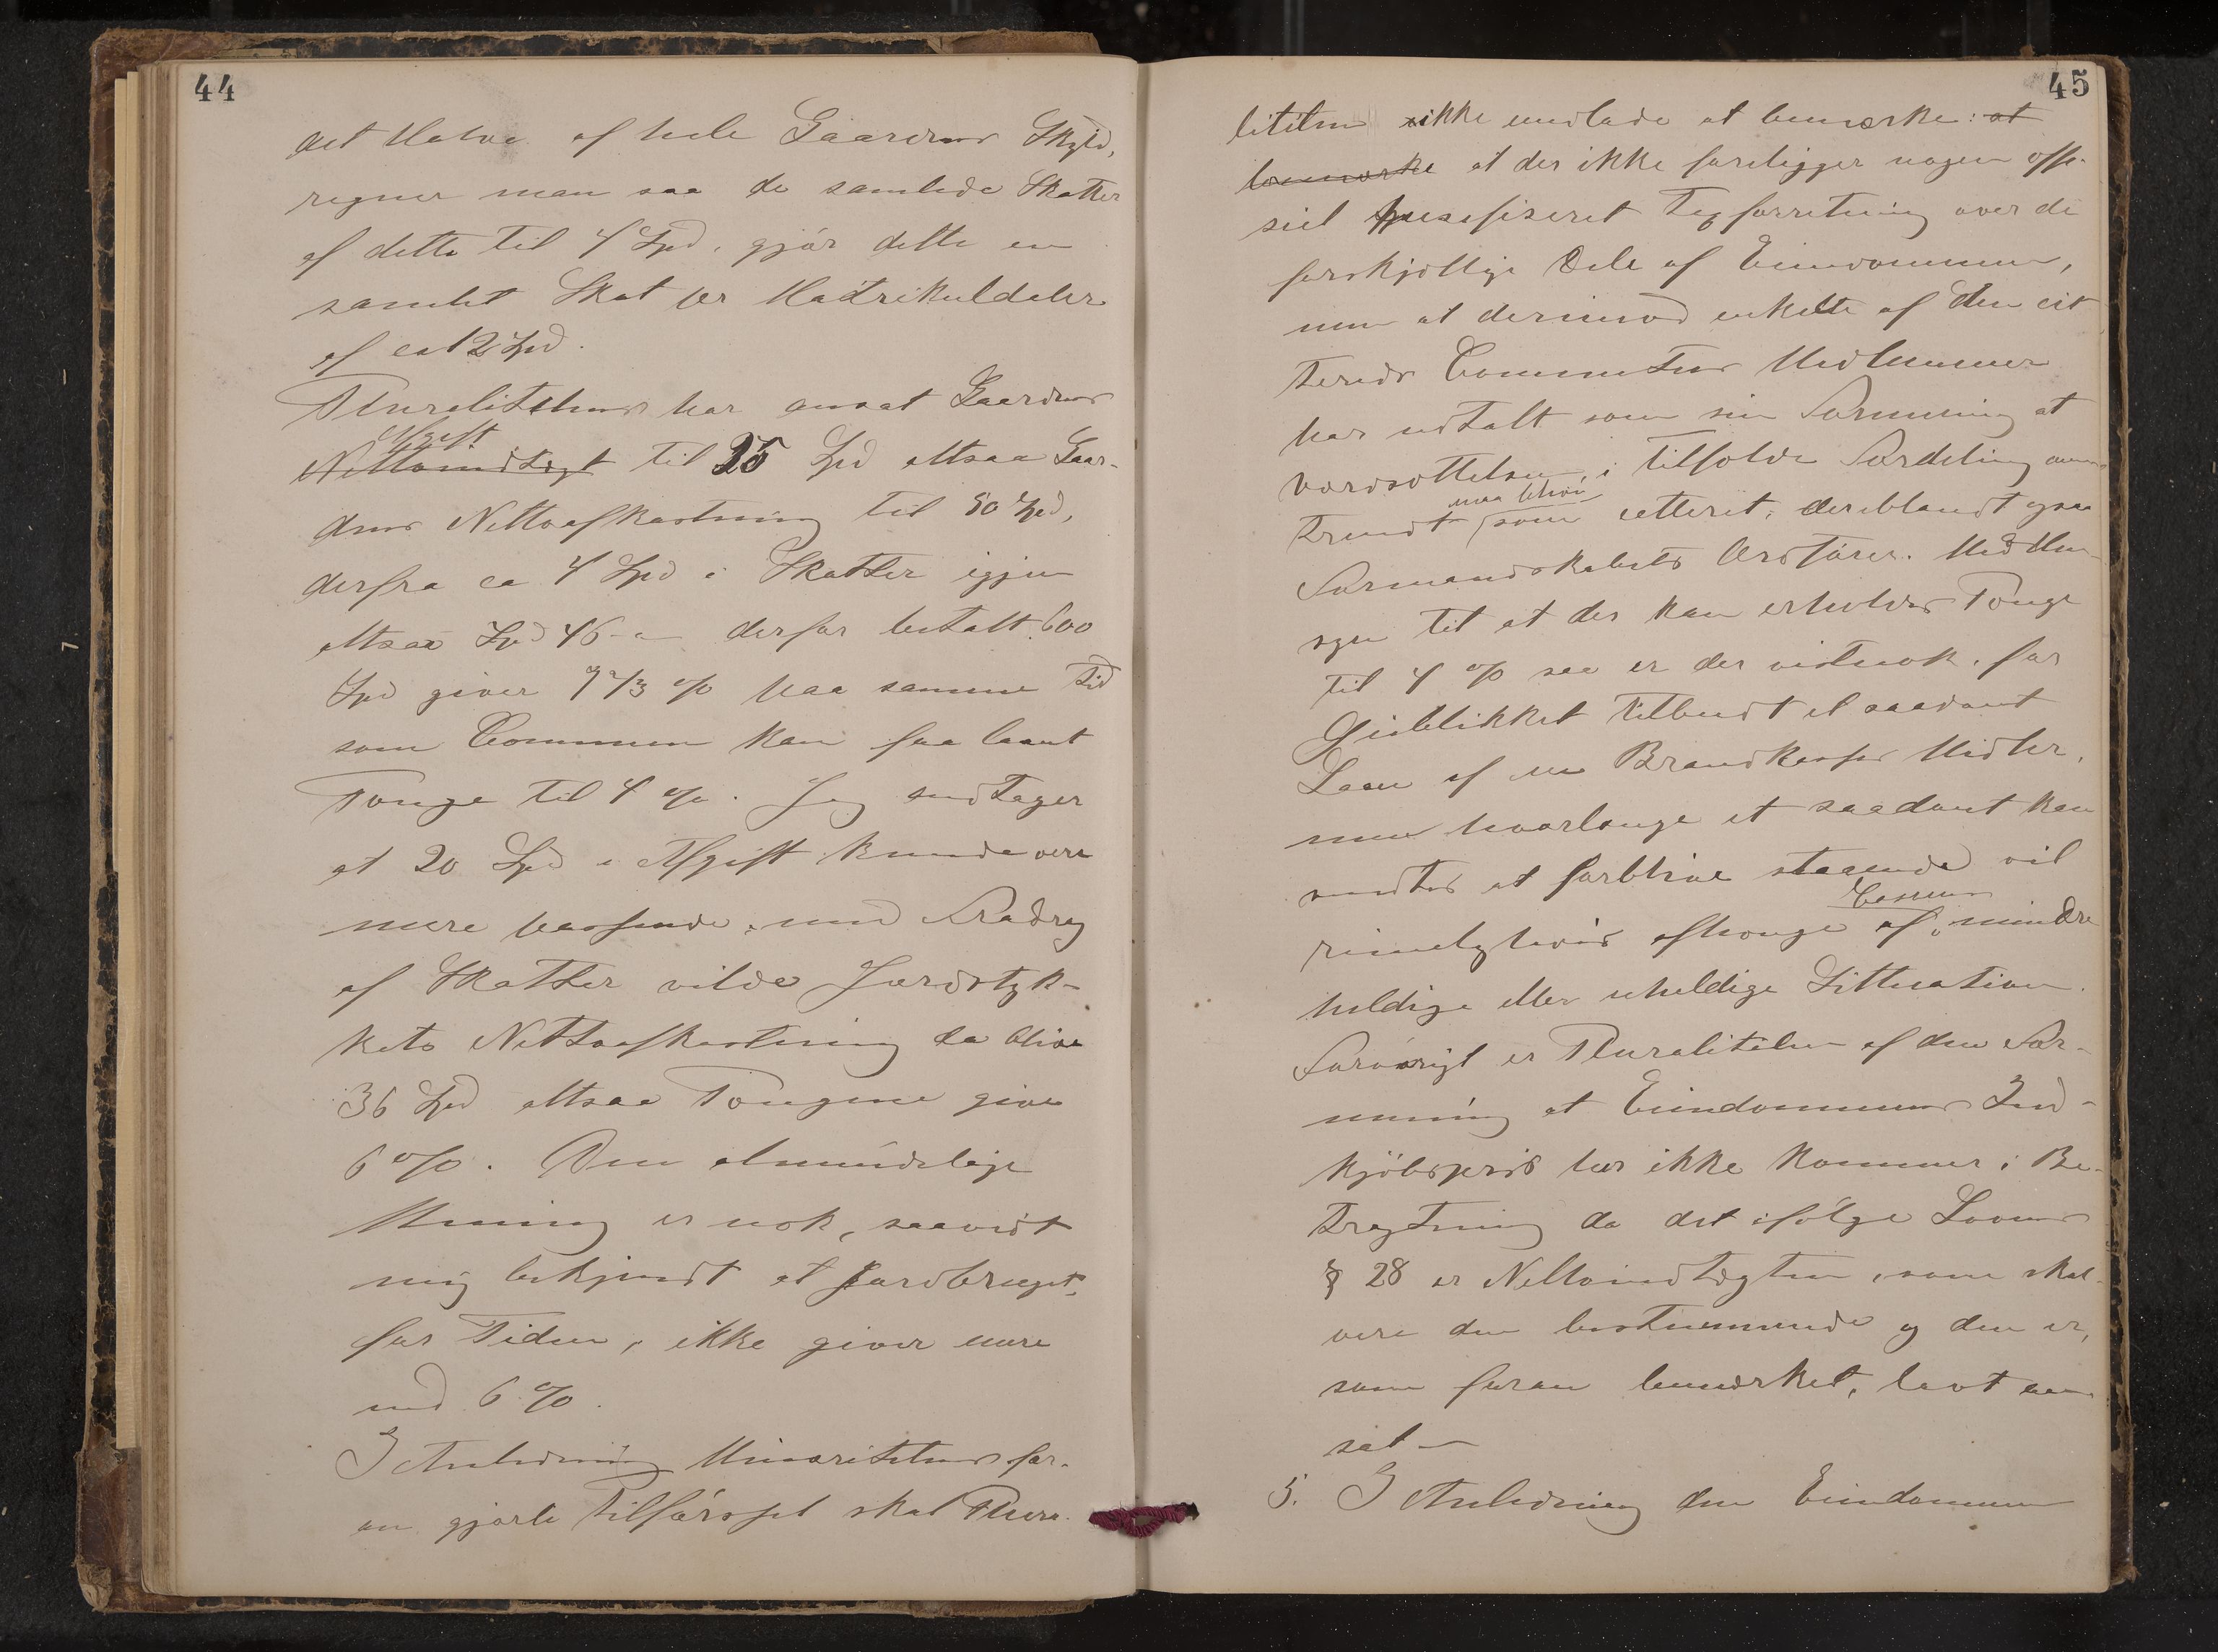 44
det Halve af hele Gaardens Skyld,
regner man saa de samlede Skatter
af dette til 4 Spd. gjør dette en
samlet Skat pr Matrikuldaler
af ca 12 Spd.
Pluraliteten har ansat Gaardens
Afgift
Nettoindtægt til 25 Spd altsaa Gaar-
dens Nettoafkastning til 50 Spd,
derfra ca 4 Spd i Skatter igjen
altsaa Spd 46 - derfor betalt 600
Spd giver 7 2/3 % paa samme Tid
som Communen kan faa laant
Penge til 4 %. Jeg antager
at 20 Spd i Afgift kunde være
mere passende, med Fradrag
af Skatter vilde Jordstyk-
kets Nettoafkastning da blive
36 Spd altsaa Pengene give
6 %. Den almindelige
Mening er nok, saavidt
mig bekjendt at Jordbruget,
for Tiden, ikke giver mere
end 6 %.
I Anledning Minoritetens for-
an gjorte Tilførsel skal Plura-
45
liteten ikke undlade at bemærke: at
bemærke at der ikke foreligger nogen offi-
siel spesifiseret Taxforretning over de
forskjellige Dele af Eiendommen,
men at derimod enkelte af den cit
terede Commitees Medlemmer
har udtalt som sin Formening at
værdsættelsen, i tilfælde Fordeling
maa blive
trendt som rettere, deriblandt ogsaa
Formandskabets Ordfører. Med Hen-
syn til at der kan erholdes Penge
til 4 % saa er der vistnok, for
Øieblikket tilbudt et saadant
Laan af en Brandkasses Midler,
men hvorlænge et saadant kan
ventes at forblive staaende vil
Cassens
rimeligtvis afhænge af mindre
heldige eller uheldige Situation.
Forøvrigt er Pluraliteten af den For-
mening at Eiendommens Ind-
kjøbspris her ikke kommer i Be-
tragtning da det ifølge Lovens
§ 28 er Nettoindtægten, som skal
være den bestemmende og den er,
som foran bemærket, lavt an
sat —
5. I Anledning den Eiendommen